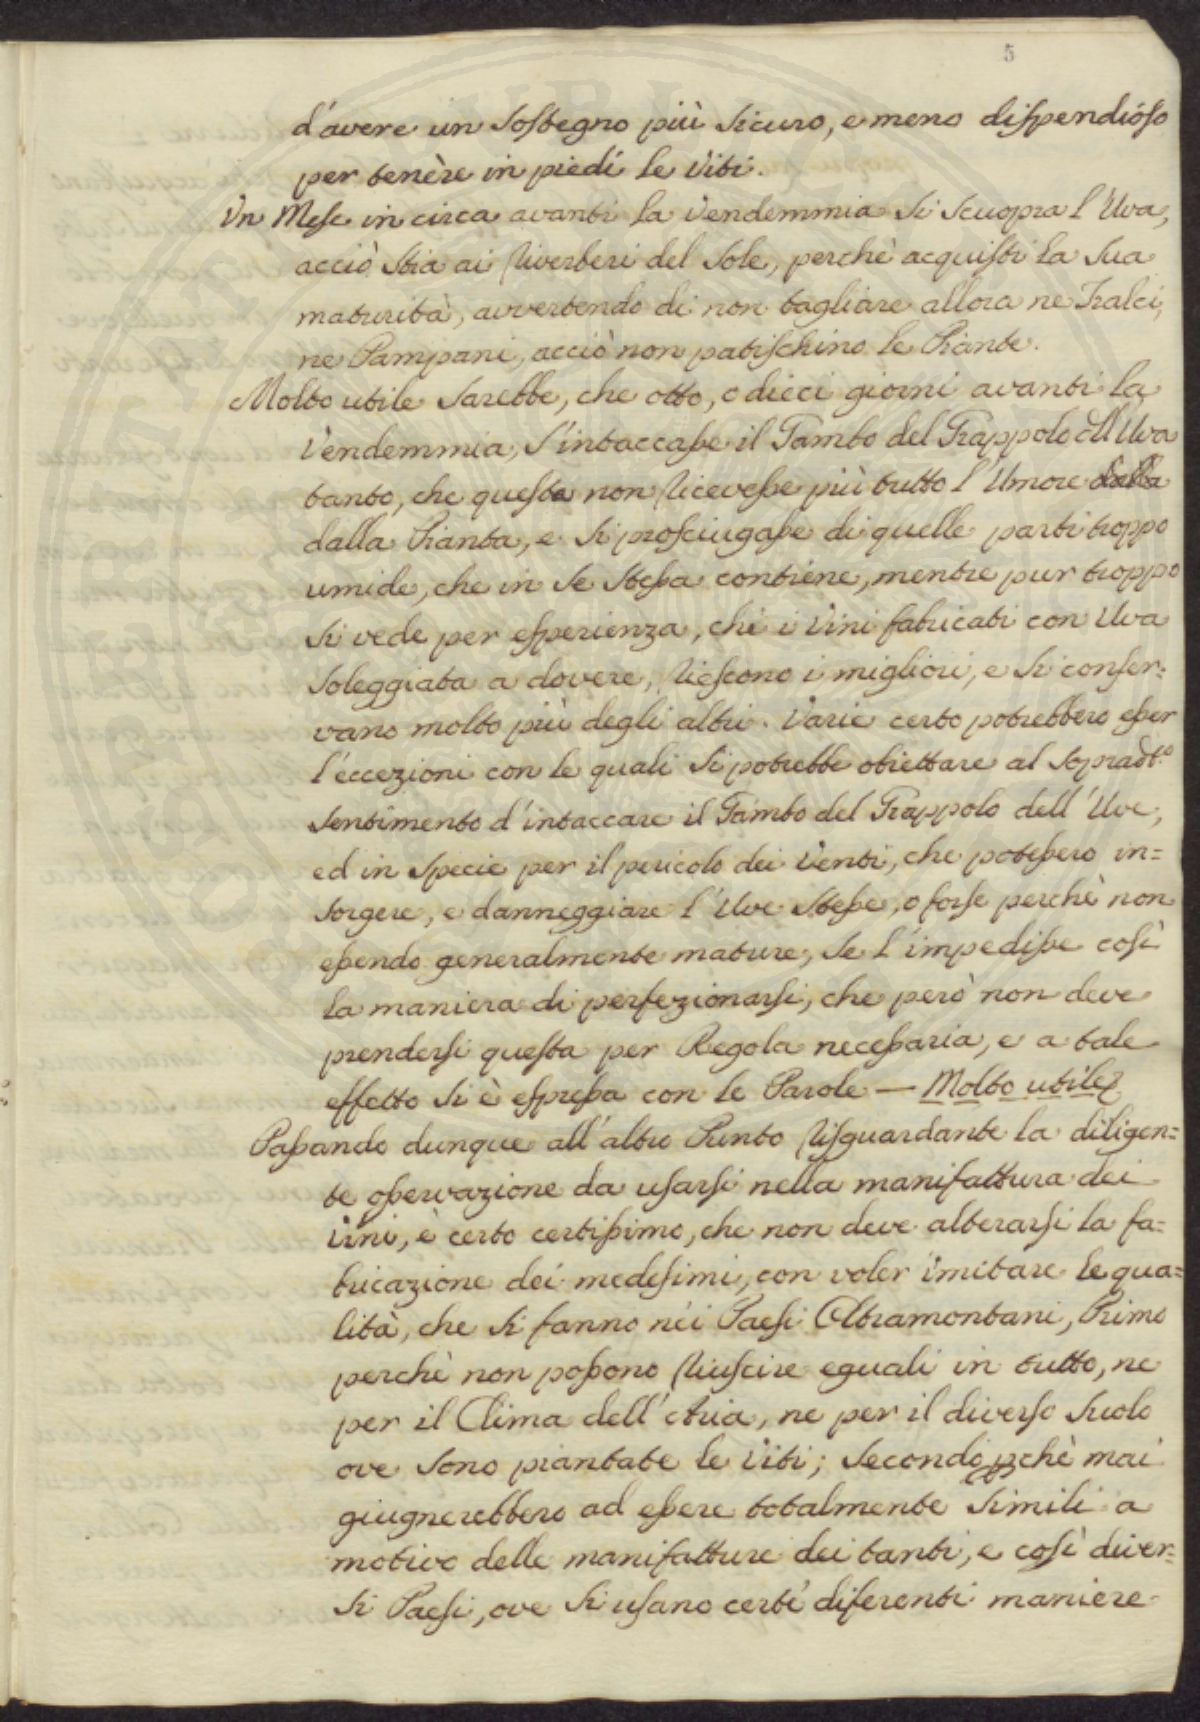 5
d'avere un sostegno più sicuro, e meno dispendióso
per tenère in piedi le Viti.
Un Mese in circa avanti la Vendemmia si scuopra l'Uva,
acciò stia ai Riverberi del Sole, perchè acquisti la sua
maturità, avvertendo di non tagliare allora ne Tralci,
ne Pampani, acciò non patischino le Piante.
Molto utile sarebbe, che otto, o dieci giorni avanti la
Vendemmia, s'intaccasse il Gambo del Grappolo dell'Uva
tanto, che questa non Ricevesse più tutto l'Umore dalla
dalla Pianta, e si prosciugasse di quelle parti troppo
umide, che in se stessa contiene, mentre pur troppo
si vede per esperienza, che i Vini fabricati con Uva
soleggiata a dovere, Riescono i migliori, e si conser=
vano molto più degli altri. Varie certo potrebbero esser
l'eccezioni con le quali si potrebbe obiettare al sopradto.
sentimento d'intaccare il Gambo del Grappolo dell'Uve,
ed in specie per il pericolo dei Venti, che potessero in=
sorgere, e danneggiare l'Uve stesse, o forse perchè non
essendo generalmente mature, se l'impedisse così
la maniera di perfezionarsi, che però non deve
prendersi questa per Regola necessaria, e a tale
effetto si è espressa con le Parole — Molto utile
Passando dunque all'altro Punto Risguardante la diligen=
te osservazione da usarsi nella manifattura dei
Vini, è certo certissimo, che non deve alterarsi la fa=
bricazione dei medesimi, con voler imitare le qua=
lità, che si fanno nei Paesi Oltramontani, Primo
perchè non possono Riuscire eguali in tutto, ne
per il Clima dell'Aria, ne per il diverso suolo
ove sono piantate le Viti; secondo pchè mai
giugnerebbero ad essere totalmente simili a
motivo delle manifatture dei tanti, e così diver=
si Paesi, ove si usano certe diferenti maniere